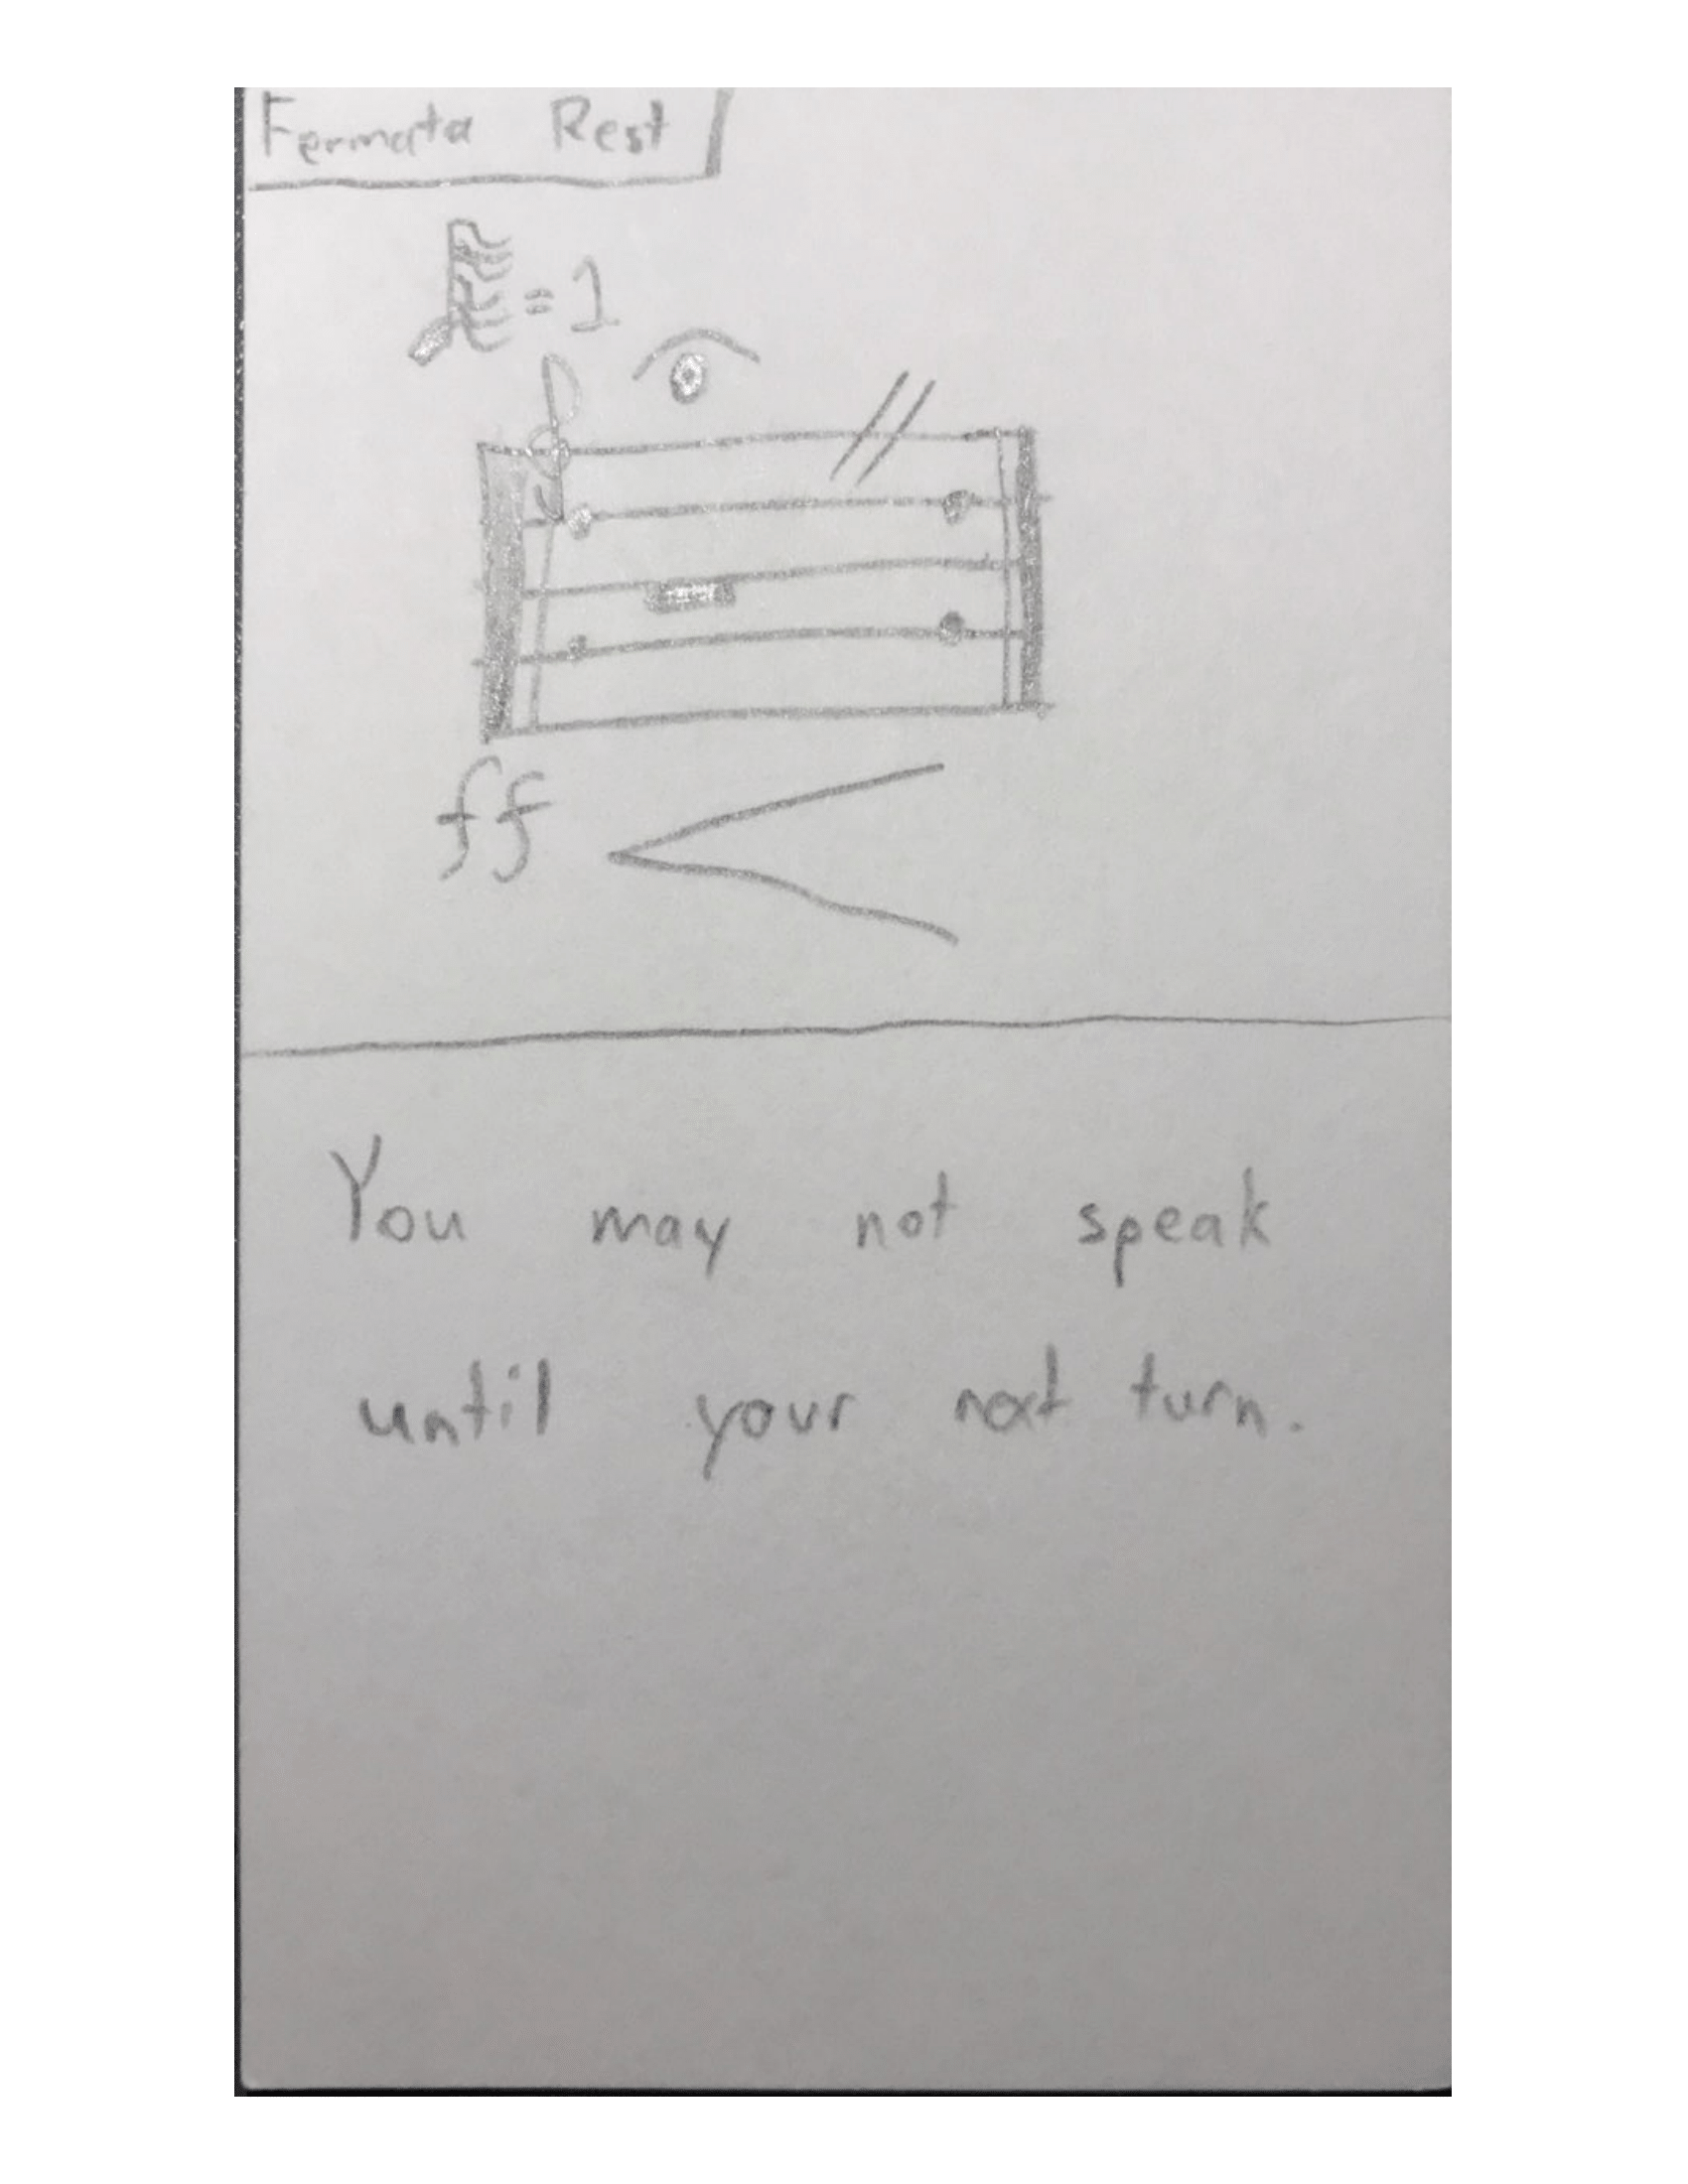 Fermata Rest
= 1
ff
You may not speak
until your next turn.